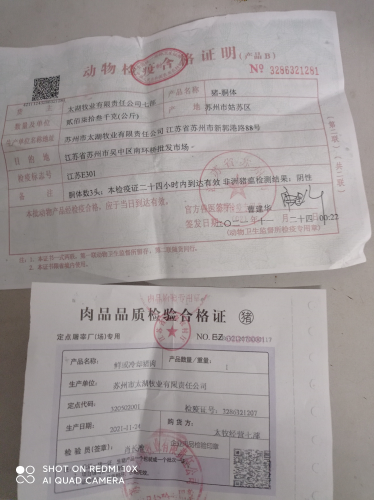 动物检疫合格证明(产品B)
№ 3286321281
太湖牧业有限责任公司七部
产品名称 猪-胴体
贰佰柒拾叁千克(公斤)
苏州市姑苏区
苏州市太湖牧业有限责任公司 江苏省苏州市新郭港路88号
目的地 江苏省苏州市吴中区南环桥批发市场
检疫标志号 江苏E301
备注 胴体数3头; 本检疫证二十四小时内到达有效 非洲猪瘟检测结果: 阴性
本批动物产品经检疫合格, 应于当日到达有效。
官方兽医签字: 曹建华
签发日期: 二〇二一年十一月二十四
(动物卫生监督所检疫专用章)
肉品品质检验合格证 猪
定点屠宰厂(场)专用
产品名称
产品数量/重量
生产单位 苏州市太湖牧业有限责任公司
定点代码 320502001
检疫证号: 3286321207
生产日期 2021-11-24
购货方: 太牧经营七部
检验员(签章)
SHOT ON REDMI 10X
AI QUAD CAMERA